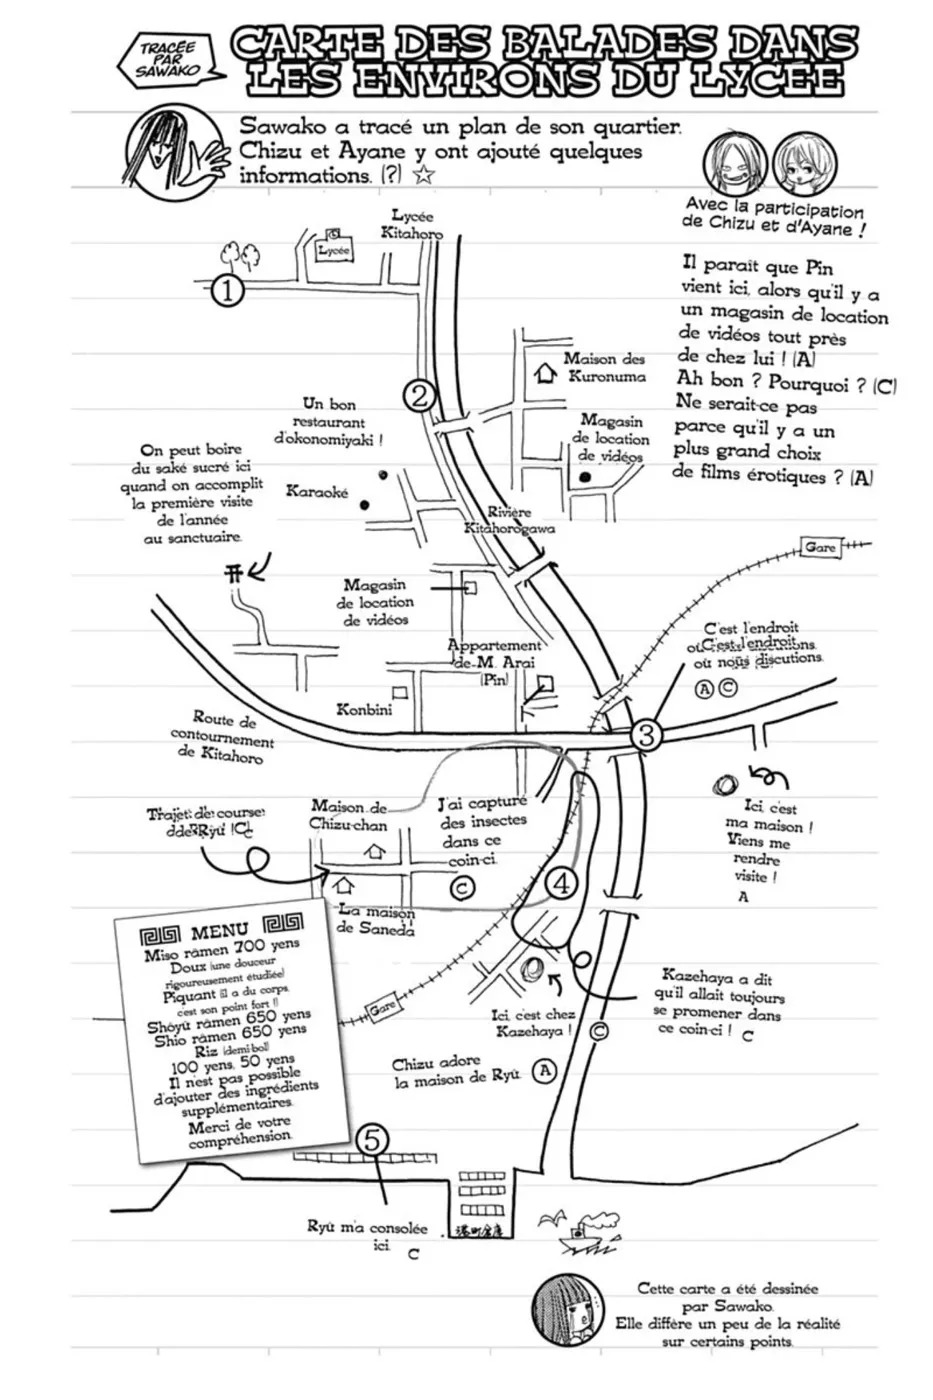 TRACÉE
PAR
SAWAKO
CARTE DES BALADES DANS
LES ENVIRONS DU LYCÉE
Sawako a tracé un plan de son quartier.
Chizu et Ayane y ont ajouté quelques
informations. (?) ☆
Avec la participation
de Chizu et d'Ayane !
Lycée
Kitahoro
Lycée
1
Il paraît que Pin
vient ici, alors qu'il y a
un magasin de location
de vidéos tout près
de chez lui ! (A)
Ah bon ? Pourquoi ? (C)
Ne serait-ce pas
parce qu'il y a un
plus grand choix
de films érotiques ? (A)
2
Maison des
Kuronuma
Un bon
restaurant
d'okonomiyaki !
Magasin
de location
de vidéos
On peut boire
du saké sucré ici
quand on accomplit
la première visite
de l'année
au sanctuaire.
Karaoké
Rivière
Kitahorogawa
Gare
Magasin
de location
de vidéos
Appartement
de M. Arai
(Pin)
C'est l'endroit
où nous discutions.
A C
Konbini
Route de
contournement
de Kitahoro
3
Trajet de course
de Ryû ! C
Maison de
Chizu-chan
J'ai capturé
des insectes
dans ce
coin-ci.
C
4
Ici, c'est
ma maison !
Viens me
rendre
visite !
A
La maison
de Saneda
MENU
Miso râmen 700 yens
Doux (une douceur
rigoureusement étudiée)
Piquant (il a du corps,
c'est son point fort !)
Shôyû râmen 650 yens
Shio râmen 650 yens
Riz (demi bol)
100 yens, 50 yens
Il n'est pas possible
d'ajouter des ingrédients
supplémentaires.
Merci de votre
compréhension.
Gare
Ici, c'est chez
Kazehaya !
Kazehaya a dit
qu'il allait toujours
se promener dans
ce coin-ci ! C
C
Chizu adore
la maison de Ryû. A
5
Ryû m'a consolée
ici. C
港町倉庫
Cette carte a été dessinée
par Sawako.
Elle diffère un peu de la réalité
sur certains points.